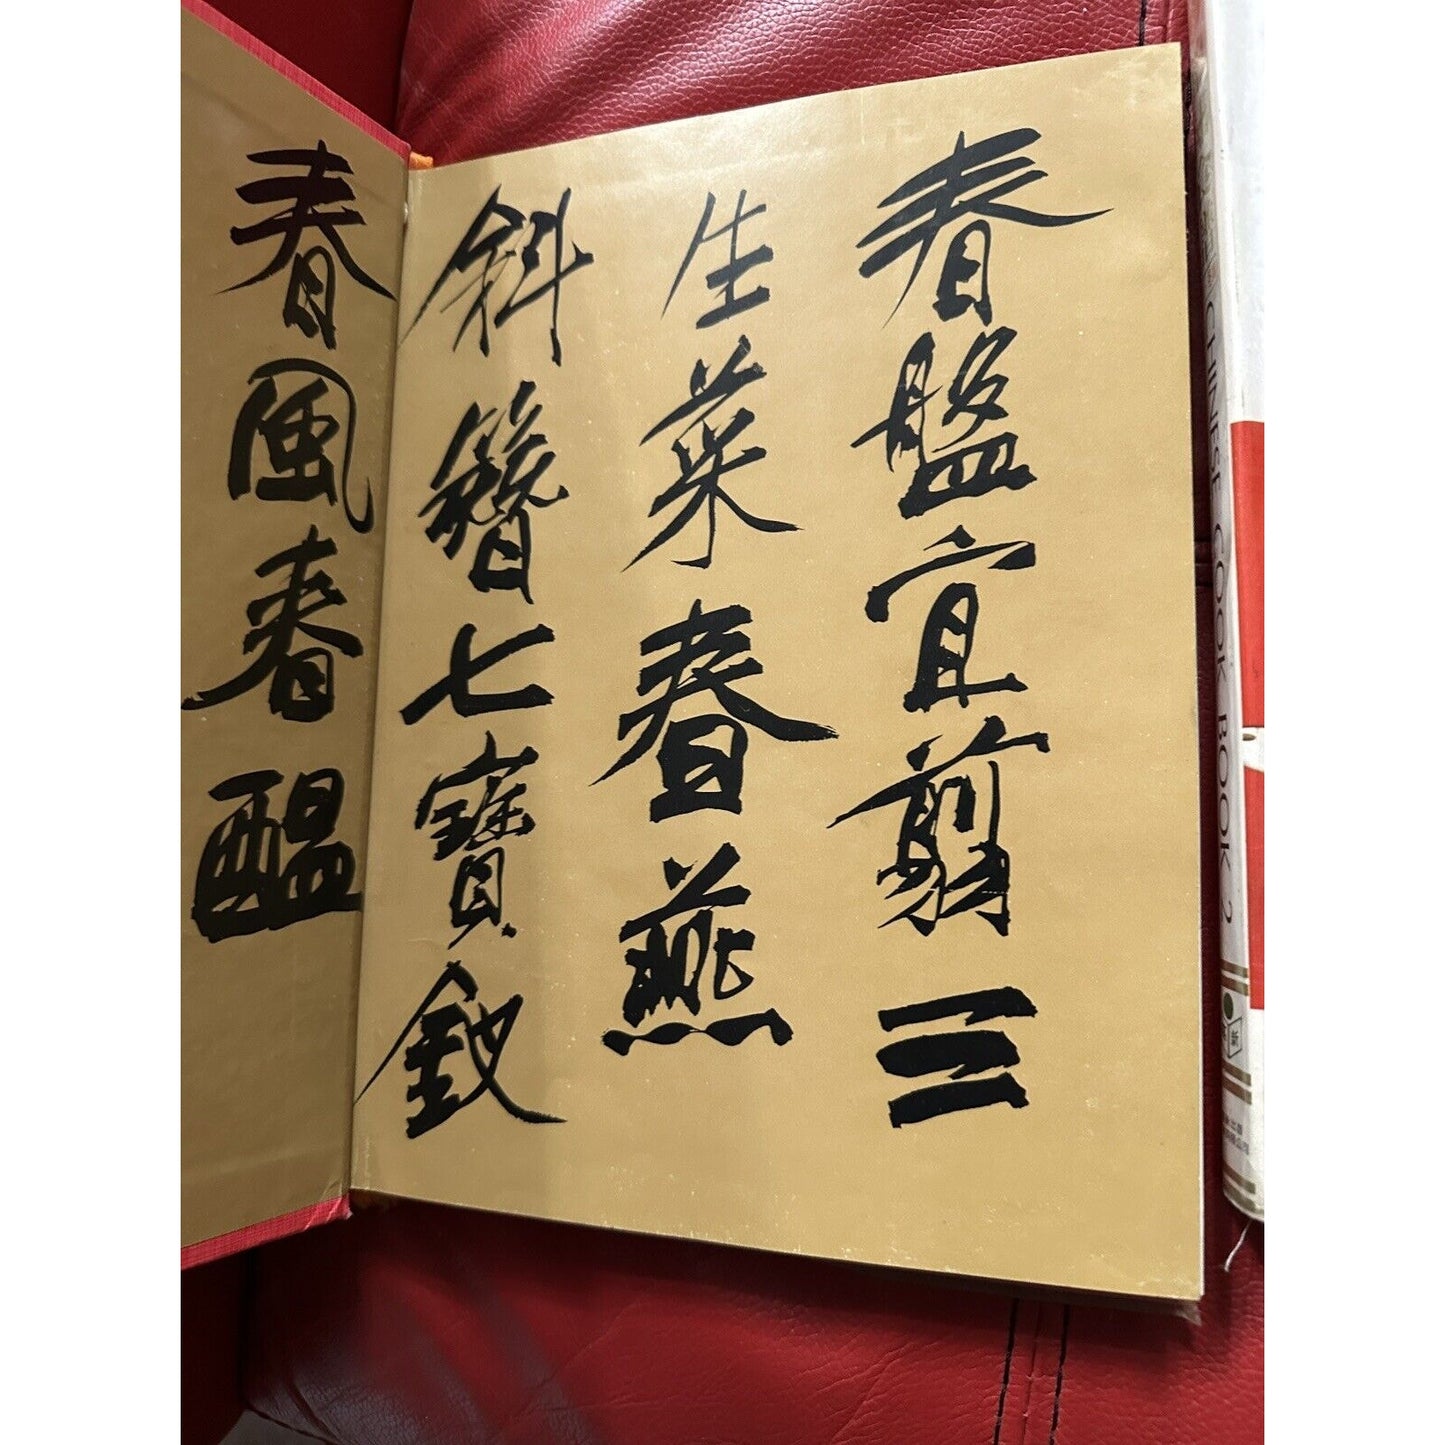 春盤宜剪三
生菜春燕
斜簪七寶釵
春風春醞
CHINESE COOK BOOK 2
新